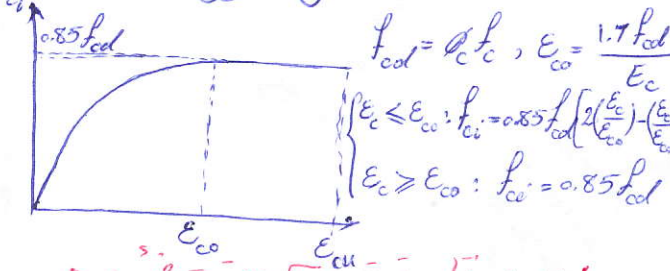 0.85f_cd
f_cd = φ_c f_c , ε_co = 1.7 f_cd / E_c
ε_c ≤ ε_co : f_ci = 0.85 f_cd [2(ε_c/ε_co) - (ε_c/ε_co
ε_c ≥ ε_co : f_ci = 0.85 f_cd
ε_co
ε_cu